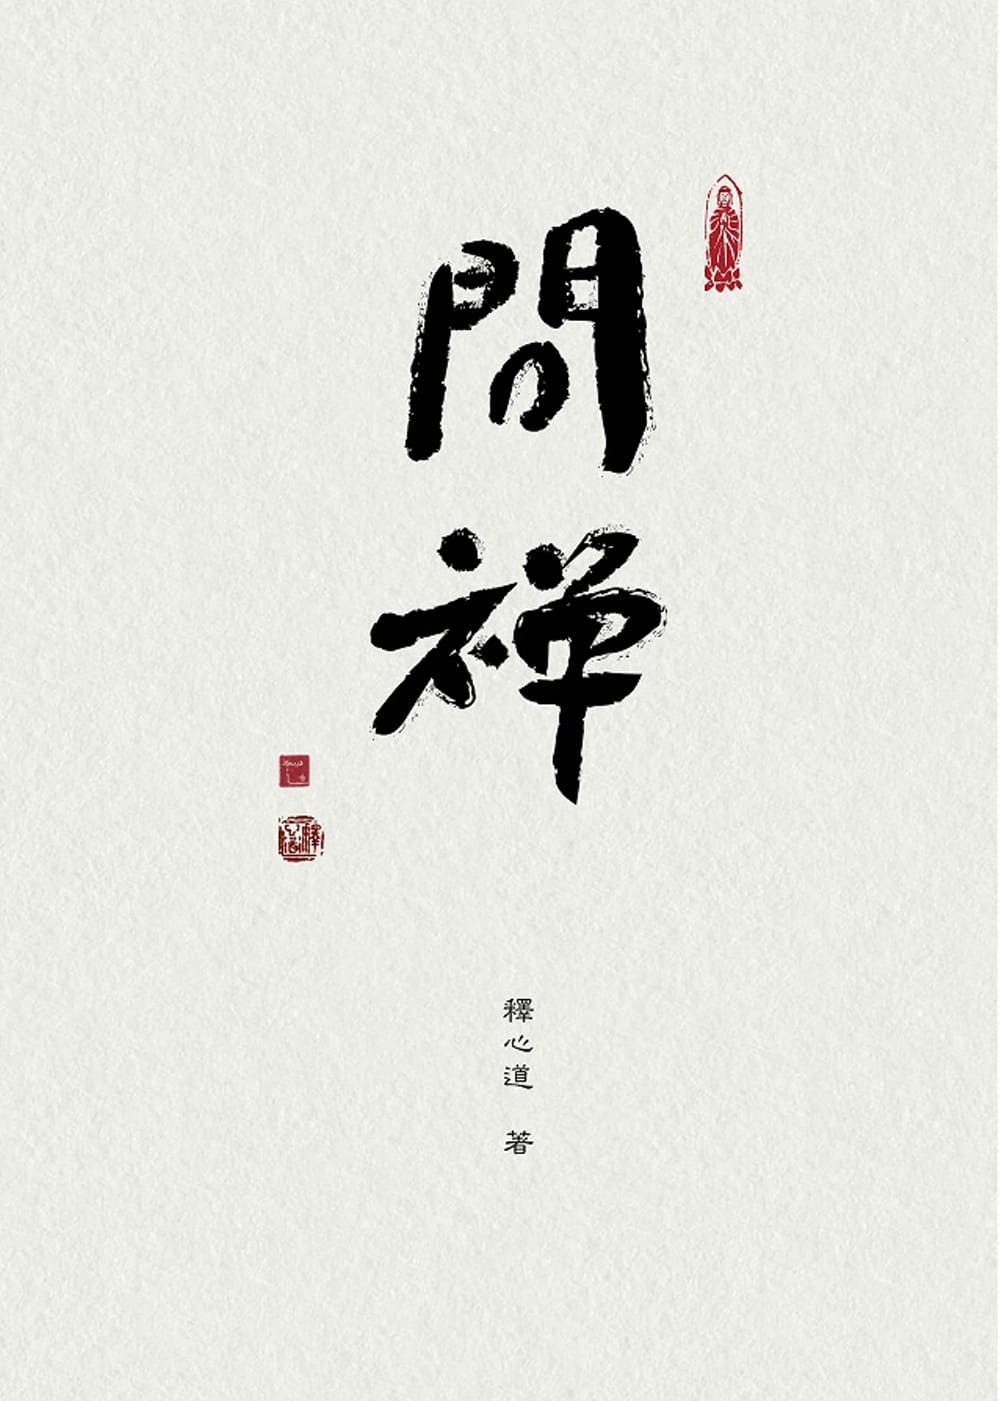 問禅
釋心道 著